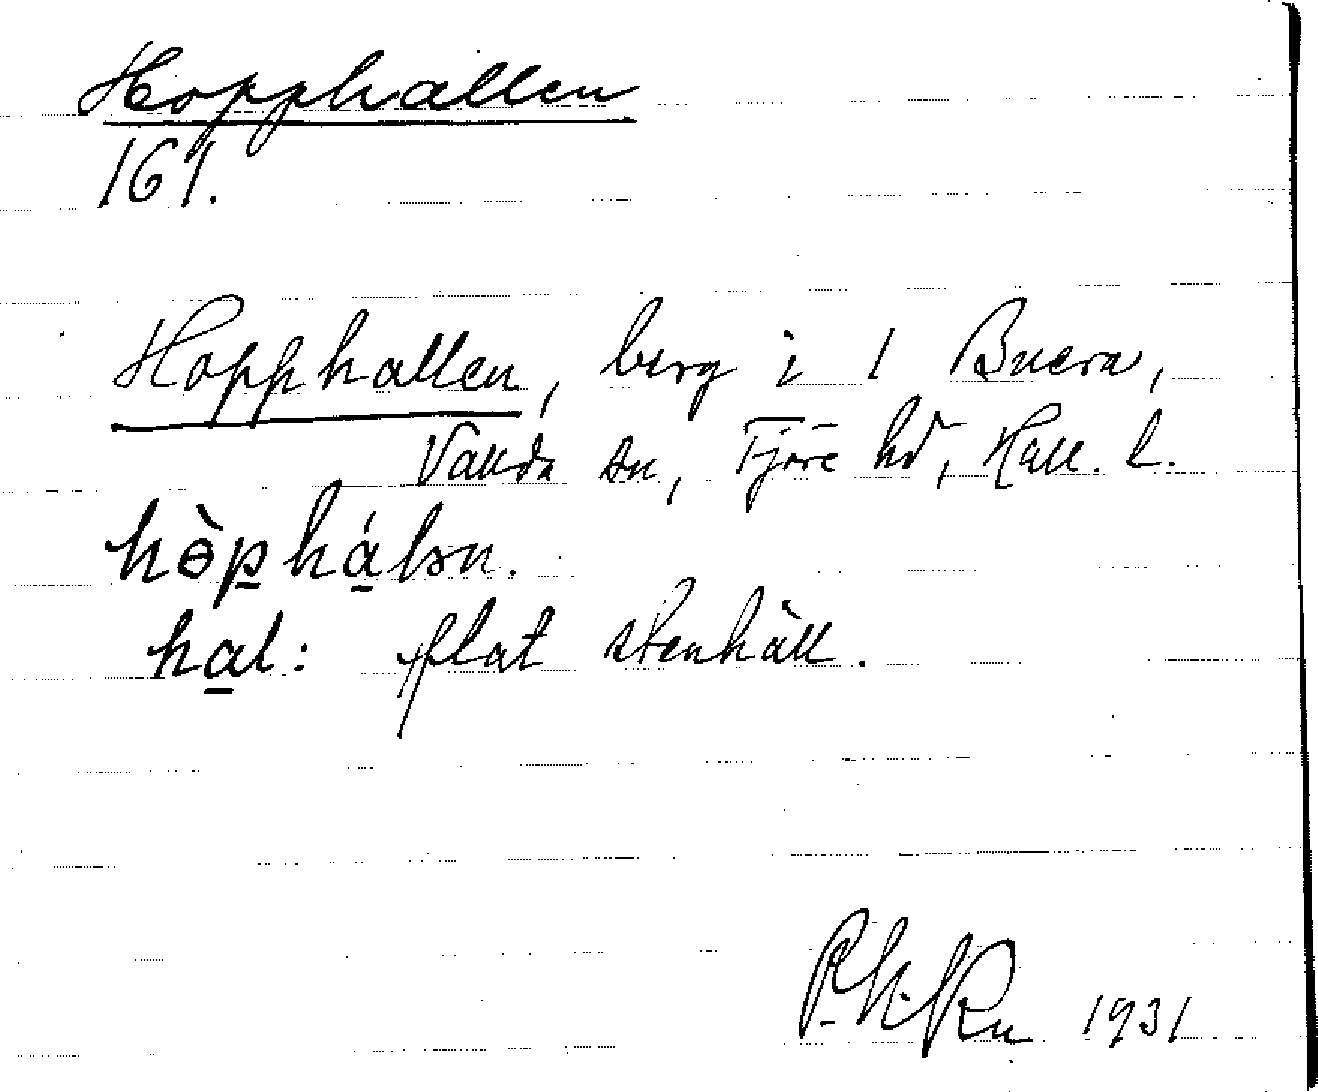 Hopphallen
161.
Hopphallen, berg i 1 Buera,
Vallda sn, Fjäre hd, Hall. l.
hòphálsn.
hal: flat stenhäll.
1931